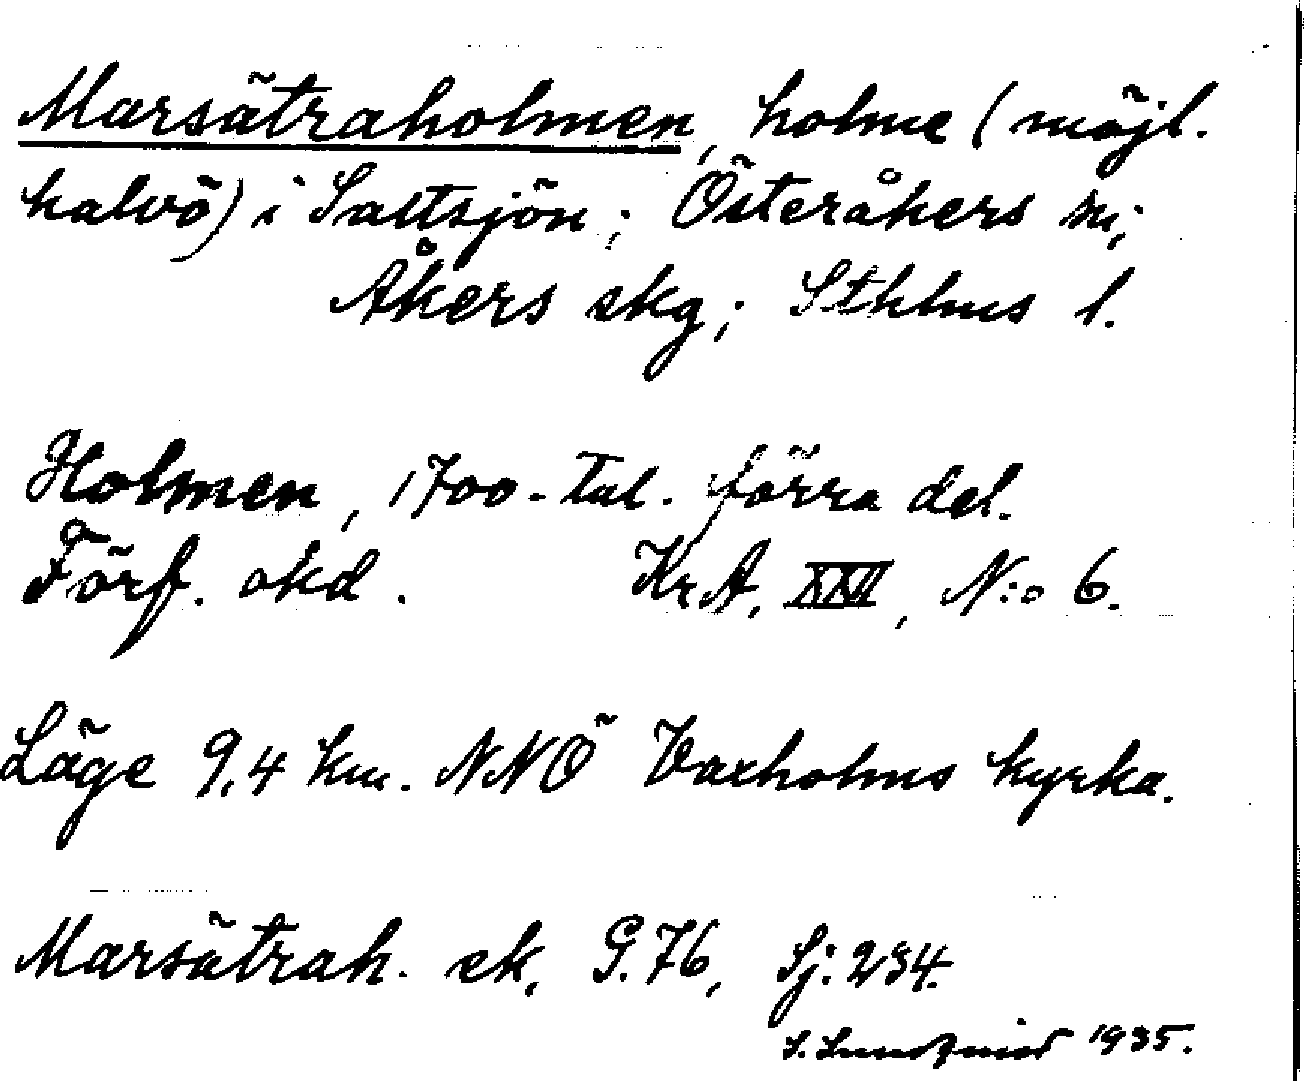 Marsätraholmen, holme (möjl.
halvö) i Saltsjön; Österåkers sn;
Åkers skg; Sthlms l.
Holmen, 1700-tal. förra del.
Förf. okd. Kr.A. XXVI, N:o 6.
Läge 9,4 km. NNÖ Vaxholms kyrka.
Marsätrah. ek. G. 76, Sj: 234.
S. Lundqvist 1935.